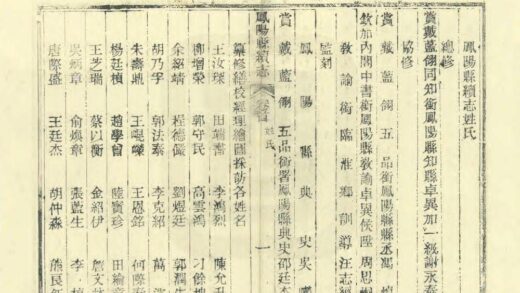 鳳陽縣續志姓氏
總修
賞戴藍翎同知銜鳳陽縣知縣卓異加一級謝永泰
協修
賞戴藍翎五品銜鳳陽縣縣丞萬
欽加內閣中書銜鳳陽縣教諭卓異候陞周思
教諭銜臨淮鄉訓導汪志
監刻
鳳陽縣典史吳
賞戴藍翎五品銜署鳳陽縣典史邵廷
鳳陽縣續志 卷首 姓氏 一
纂修繕校經理繪圖採訪各姓名
王汝琛 田瑞 李鴻烈 陳允升
柳增榮 郭守民 高雲鴻 餘
余紹靖 程德 劉煜廷 郭潤生
胡乃孚 郭法泰 李克紹 萬
朱壽鼎 王 王恩銘 何際
楊廷楨 趙學曾 陸寶珍 田綸
王芝瑞 蔡以衡 金紹伊 詹文
吳炳章 俞煥章 張藍生 李
唐際盛 王廷杰 胡仲森 熊良